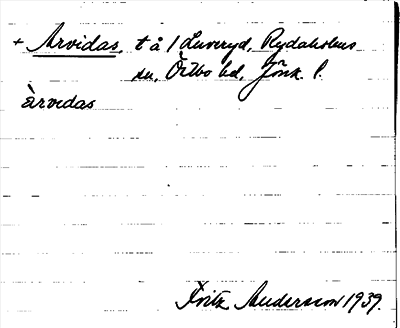 + Arvidas, t å 1 Luveryd, Rydaholms
sn, Östbo hd, Jönk. l.
àrvidas
Fritz Andersson 1939.